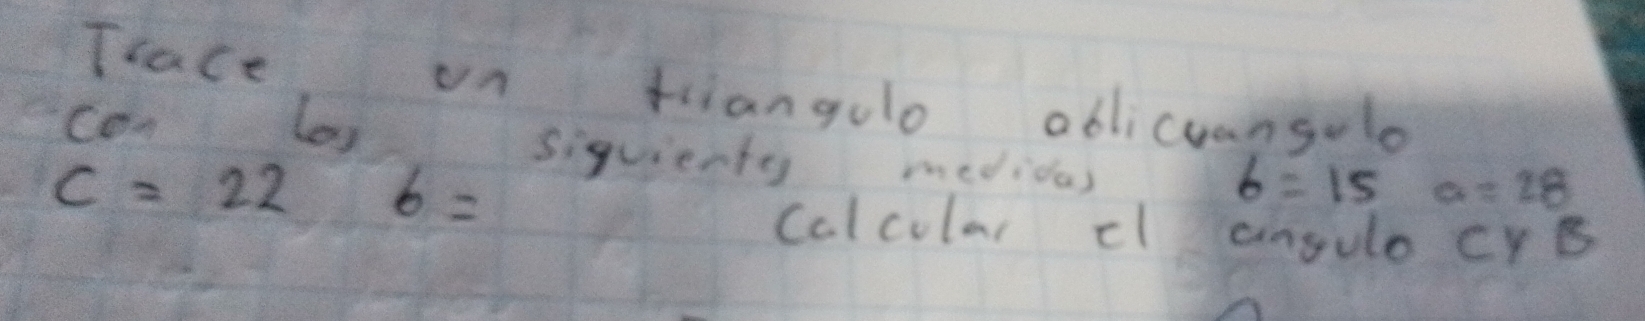 Trace un triangulo oblicuangulo
con los siguientes medidas b = 15 a = 28
C = 22 b = Calcular el angulo C y B